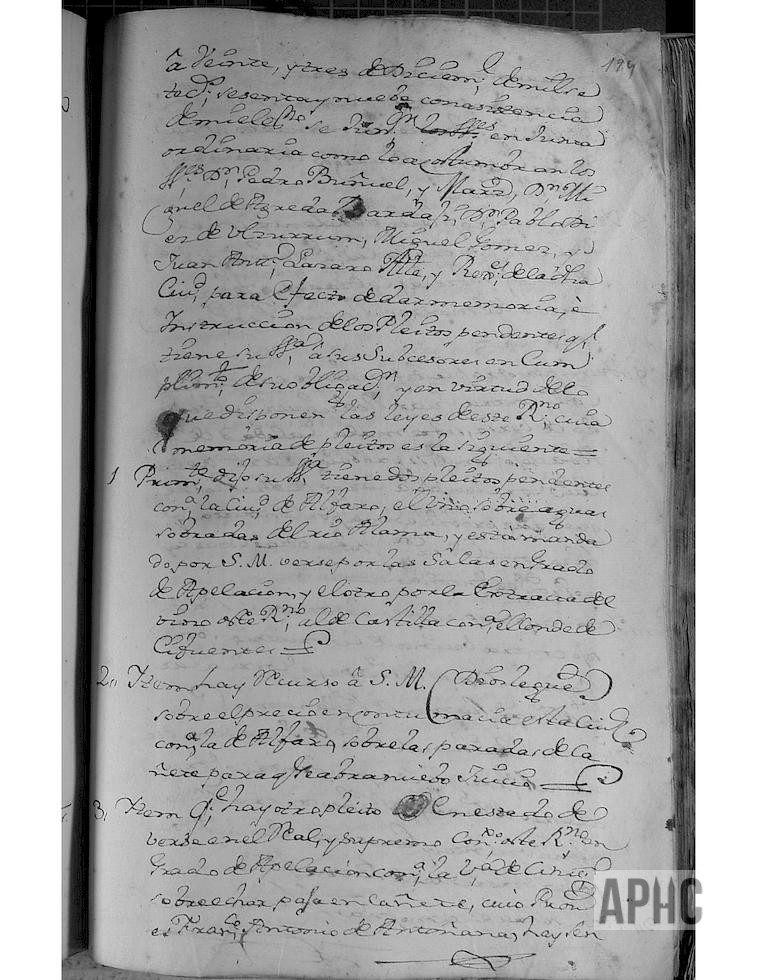 194
â Veinte, y tres de Diciem.e de mill se
tec.s sesenta y nueve con asistencia
de mi el es.no se Jun.n en Junta
ordinaria como lo acostumbran los
SS.res D.n Pedro Buñuel, y Marz, D.n Mi
guel de Agreda D.n Pablo Di
ez de Ulzurrum, Miguel Gomez, y
Juan Ant.o Lazaro Alle, y Rex.s de la dha
Ciu.d para efecto de dar memoria, è
Instruccion de los Pleitos pendentes q.e
tiene su SS.a â sus Subcesores en Cum
plim.to de su obligaz.n y en virtud de lo
que disponen las leyes de este R.no cuia
memoria de pleitos es la siguiente =
1 Prim.te dijo su SS.a tiene dos pleitos pendentes
con.a la Ciu.d de Alfaro, el uno sobre aguas
sobradas del rio Alama, y està manda
do por S. M. verse por las Salas en Grado
de Apelacion, y el otro por la Extraccia del
vino de este R.no al de Castilla con.a el Conde de
Cifuentes =
2,, Item hay Recurso â S. M. (Dios le gue)
sobre el precio en contumacia esta Ciu.d
con.a la de Alfaro, sobre las paradas de Ca
ñete para q.e se abra nuebo Juicio =
3, Item q.e hay otro pleito en estado de
verse en el Real, y Supremo Con.o de este R.no en
Grado de Apelacion con.a la V.a de Cintr.o
sobre echar pasa en Cañete, cuio Pron
es Fran.co Antonio de Antoñana, hay Sen
APHC